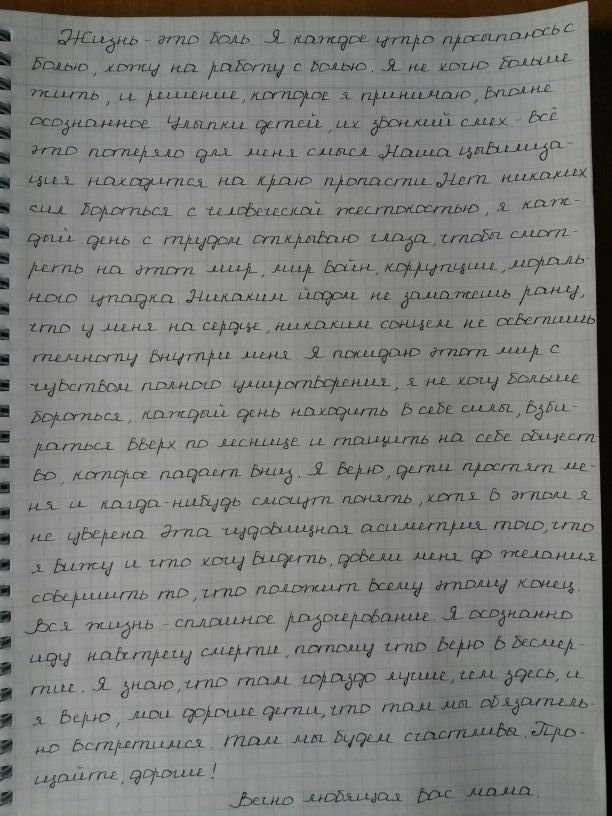 Жизнь - это боль. Я каждое утро просыпаюсь с
болью, хожу на работу с болью. Я не хочю больше
жить, и решение, которое я принимаю, вполне
осознанное. Улыпки детей, их звонкий смех - всё
это потеряло для меня смысл. Наша цывилиза-
ция находится на краю пропасти. Нет никаких
сил бороться с человеческой жестокостью, я каж-
дый день с трудом открываю глаза, чтобы смот-
реть на этот мир, мир войн, коррупции, мораль-
ного упадка. Никаким йодом не замажешь рану,
что у меня на сердце, никаким сонцем не осветишь
темноту внутри меня. Я покидаю этот мир с
чувством полного умиротворения, я не хочу больше
бороться, каждый день находить в себе силы, взби-
раться вверх по леснице и тащить на себе общест-
во, которое падает вниз. Я верю, дети простят ме-
ня и кагда-нибудь смогут понять, хотя в этом я
не уверена. Эта чудовищная асиметрия того, что
я вижу и что хочу видеть, довели меня до желания
совершить то, что положит всему этому конец.
Вся жизнь - сплошное разочерование. Я осознанно
иду навстречу смерти, потому что верю в бесмер-
тие. Я знаю, что там гораздо лучше, чем здесь, и
я верю, мои дорогие дети, что там мы обязатель-
но встретимся. Там мы будем счастливы. Про-
щайте, дорогие!
Вечно любящая вас мама.